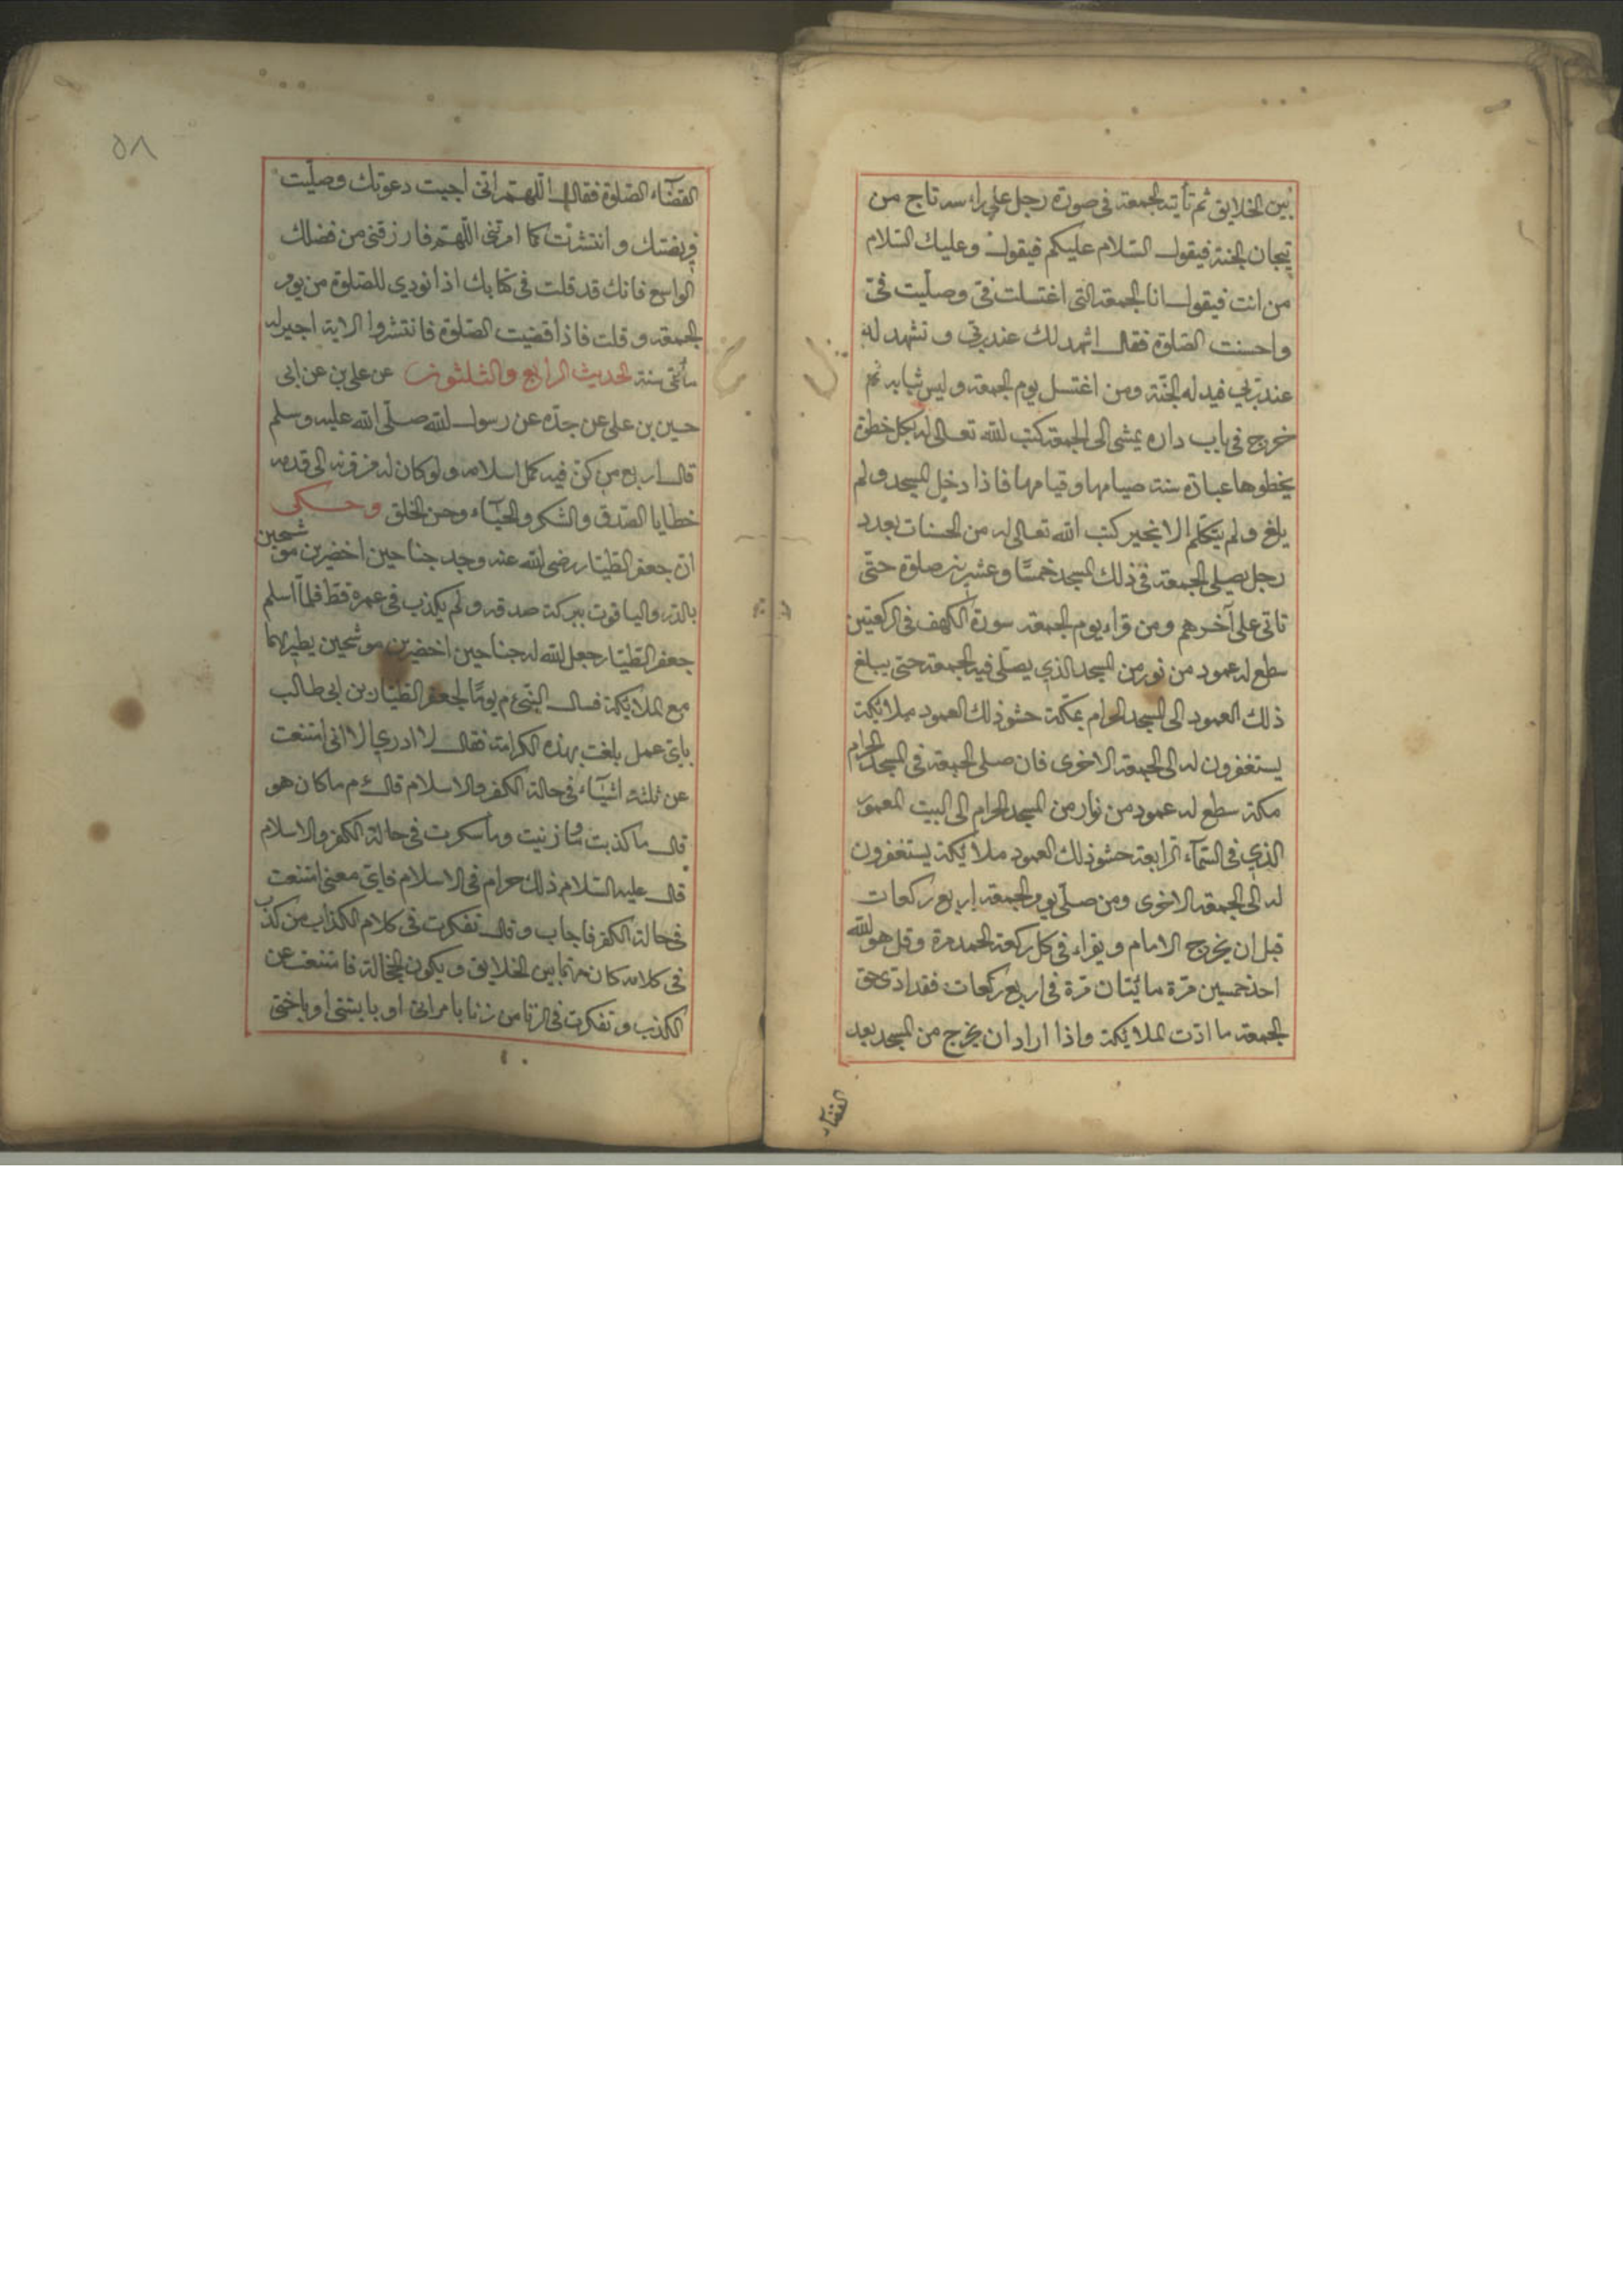 بين الخلايق ثم تأتيه الجمعة فى صورة رجل على راسه تاج من
تيجان الجنة فيقول السلام عليكم فيقول وعليك السلام
من انت فيقول انا الجمعة التى اغتسلت فىّ وصلّيت فىّ
واحسنت الصّلوة فقال اشهد لك عند ربّى و تشهد له
عند ربى فيدله الجنّة ومن اغتسل يوم الجمعة و لبس ثيابه ثم
خرج فى باب داره يمشى الى الجمعة كتب الله تعالى له بكل خطوة
يخطوها عبادة سنة صيامها وقيامها فاذا دخل المسجد ولم
يلغ ولم يتكلّم الا بخير كتب الله تعالى له من الحسنات بعدد
رجل يصلى الجمعة فى ذلك المسجد خمسًا وعشرين صلوة حتّى
تاتى على آخرهم ومن قراء يوم الجمعة سورة الكهف فى الركعتين
سطع له عمود من نور من المسجد الذي يصلّى فيه الجمعة حتى يبلغ
ذلك العمود الى المسجد الحرام بمكّة حشو ذلك العمود ملائكة
يستغفرون له الى الجمعة الاخرى فان صلى الجمعة فى المسجد الحرام
مكة سطع له عمود من نوار من المسجد الحرام الى البيت المعمور
الذي فى السّمآء الرابعة حشو ذلك العمود ملائكة يستغفرون
له الى الجمعة الاخرى ومن صلّى يوم الجمعة اربع ركعات
قبل ان يخرج الامام و يقراء فى كل ركعة الحمد مرة وقل هو الله
احد خمسين مرّة مائيتان مرّة فى اربع ركعات فقد ادى حق
الجمعة ما ادّت الملايكة واذا اراد ان يخرج من المسجد بعد
القضآء
٥٨
القضآء الصّلوة فقال اللّهمّ انّى اجبت دعوتك وصلّيت
فريضتك وانتشرت كما امرتنى اللّهمّ فارزقنى من فضلك
الواسع فانك قد قلت فى كتابك اذا نودي للصّلوة من يوم
الجمعة و قلت فاذا قضيت الصّلوة فانتشروا الاية اجير له
مأتى سنة الحديث الرابع والثلثون عن على بن عن ابى
حسين بن على عن جدّه عن رسول الله صلّى الله عليه وسلم
قال اربع من كنّ فيه كمل اسلامه ولو كان له من قرنه الى قدمه
خطايا الصّدق والشكر والحيآء وحسن الخلق وحكى
انّ جعفر الطّيّار رضى الله عنه وجد جناحين اخضرين موشحين
بالدّر والياقوت ببركة صدقه ولم يكذب فى عمره قطّ فلمّا اسلم
جعفر الطّيّار جعل الله له جناحين اخضرين موشحين يطير بهما
مع الملايكة فسال النّبى ءم يومًا لجعفر الطّيّار بن ابى طالب
باىّ عمل بلغت بهذه الكرامة فقال لا ادري الا انى امتنعت
عن ثلثة اشيآء فى حالة الكفر والاسلام قال ءم ما كان هو
قال ما كذبت وما زنيت وما سكرت فى حالة الكفر والاسلام
قال عليه السّلام ذلك حرام فى الاسلام فاىّ معنى امتنعت
فى حالة الكفر فاجاب وقال تفكرت فى كلام الكذاب من كذب
فى كلامه كان بين الخلايق ويكون فامتنعت عن
الكذب وتفكرت فى الزنا من زنا بامراتى او بابنتى او باختى